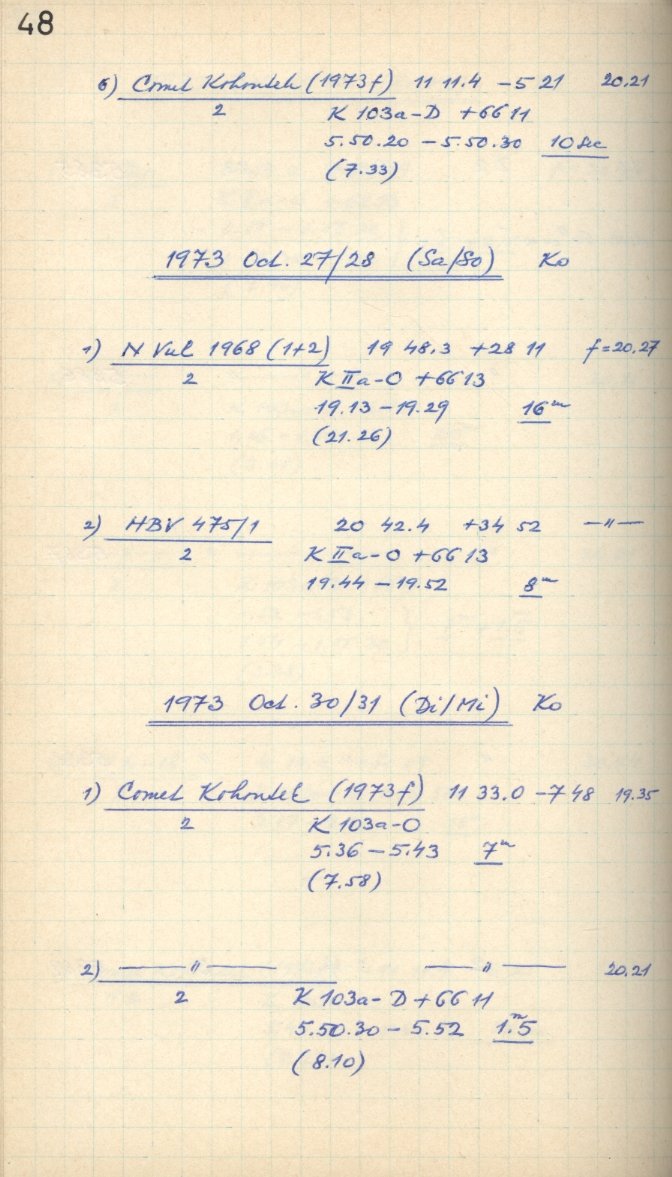 48
6) Comet Kohoutek (1973f) 11 11.4 -5 21 20.21
2 K 103a-D +66 11
5.50.20 - 5.50.30 10 sec
(7.33)
1973 Oct. 27/28 (Sa/So) Ko
1) N Vul 1968 (1+2) 19 48.3 +28 11 f=20.27
2 K IIa-O +66 13
19.13 - 19.29 16 m
(21.26)
2) HBV 475/1 20 42.4 +34 52 —〃—
2 K IIa-O +66 13
19.44 - 19.52 8 m
1973 Oct. 30/31 (Di/Mi) Ko
1) Comet Kohoutek (1973f) 11 33.0 -7 48 19.35
2 K 103a-O
5.36 - 5.43 7 m
(7.58)
2) —〃— —〃— 20.21
2 K 103a-D +66 11
5.50.30 - 5.52 1.m5
(8.10)